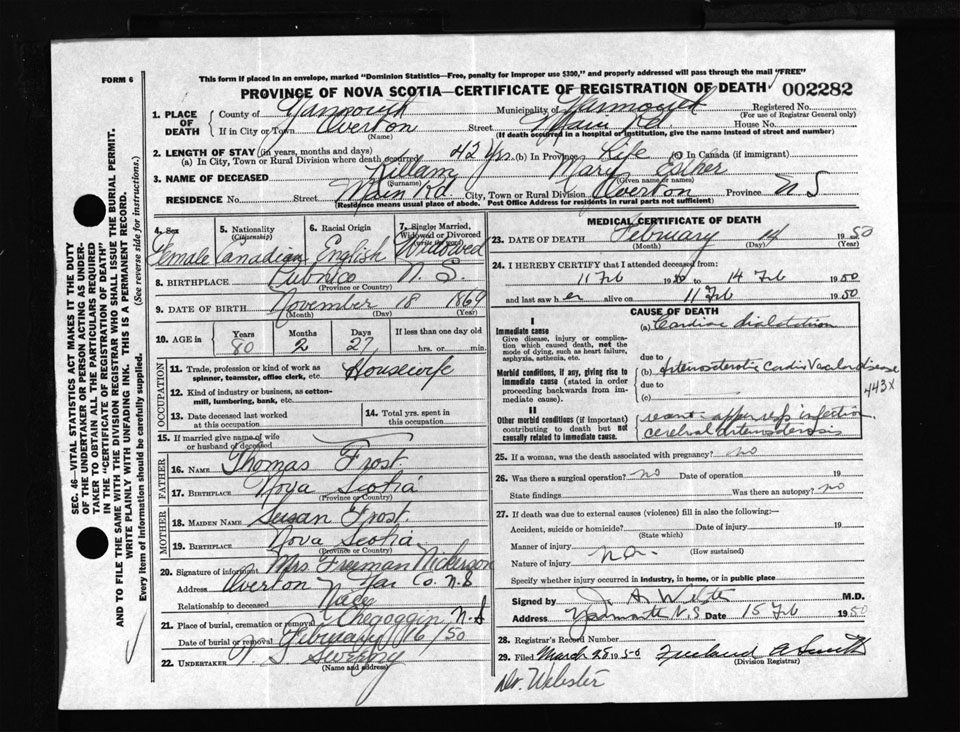 FORM 6
This form if placed in an envelope, marked "Dominion Statistics—Free, penalty for improper use $300," and properly addressed will pass through the mail "FREE"
PROVINCE OF NOVA SCOTIA—CERTIFICATE OF REGISTRATION OF DEATH 002282
1. PLACE OF DEATH
County of Yarmouth Municipality of Yarmouth Registered No.
(For use of Registrar General only)
If in City or Town Overton Street Main Rd House No.
(Name) (If death occurred in a hospital or institution, give the name instead of street and number)
2. LENGTH OF STAY (in years, months and days)
(a) In City, Town or Rural Division where death occurred 42 yrs. (b) In Province Life (c) In Canada (if immigrant)
3. NAME OF DECEASED Killam Mary Esther
(Surname) (Given name or names)
RESIDENCE No. Street Main Rd City, Town or Rural Division Overton Province N S
(Residence means usual place of abode. Post Office Address for residents in rural parts not sufficient)
4. Sex Female
5. Nationality (Citizenship) Canadian
6. Racial Origin English
7. Single, Married, Widowed or Divorced (write the word) Widowed
8. BIRTHPLACE Pubnico N. S.
(Province or Country)
9. DATE OF BIRTH November 18 1869
(Month) (Day) (Year)
10. AGE in Years 80 Months 2 Days 27 If less than one day old hrs. or min.
OCCUPATION
11. Trade, profession or kind of work as spinner, teamster, office clerk, etc. Housewife
12. Kind of industry or business, as cotton-mill, lumbering, bank, etc.
13. Date deceased last worked at this occupation
14. Total yrs. spent in this occupation
15. If married give name of wife or husband of deceased
FATHER
16. NAME Thomas Frost.
17. BIRTHPLACE Nova Scotia
(Province or Country)
MOTHER
18. MAIDEN NAME Susan Frost.
19. BIRTHPLACE Nova Scotia
(Province or Country)
20. Signature of informant Mrs. Freeman Nickerson
Address Overton Yar Co. N.S
Relationship to deceased Niece
21. Place of burial, cremation or removal Chegoggin, N.S
Date of burial or removal February 16/50
22. UNDERTAKER Sweeny
(Name and address)
MEDICAL CERTIFICATE OF DEATH
23. DATE OF DEATH February 14 1950
(Month) (Day) (Year)
24. I HEREBY CERTIFY that I attended deceased from:
11 Feb 1950 to 14 Feb 1950
and last saw h er alive on 11 Feb 1950
CAUSE OF DEATH
I
Immediate cause
Give disease, injury or complication which caused death, not the mode of dying, such as heart failure, asphyxia, asthenia, etc.
(a) Cardiac dialatation
due to
Morbid conditions, if any, giving rise to immediate cause (stated in order proceeding backwards from immediate cause).
(b) Arteriosclerotic Cardio Vascular disease
due to
443X
(c)
II
Other morbid conditions (if important) contributing to death but not causally related to immediate cause.
upper resp infection
cerebral arteriosclerosis
25. If a woman, was the death associated with pregnancy? no
26. Was there a surgical operation? no Date of operation 19
State findings Was there an autopsy? no
27. If death was due to external causes (violence) fill in also the following:—
Accident, suicide or homicide? Date of injury 19
(State which)
Manner of injury
(How sustained)
Nature of injury
Specify whether injury occurred in industry, in home, or in public place
Signed by M.D.
Address Yarmouth N.S Date 15 Feb 1950
28. Registrar's Record Number
29. Filed March 28 1950 Smith
(Division Registrar)
Dr. Webster
SEC. 46—VITAL STATISTICS ACT MAKES IT THE DUTY
OF THE UNDERTAKER OR PERSON ACTING AS UNDER-
TAKER TO OBTAIN ALL THE PARTICULARS REQUIRED
IN THE "CERTIFICATE OF REGISTRATION OF DEATH"
AND TO FILE THE SAME WITH THE DIVISION REGISTRAR WHO SHALL ISSUE THE BURIAL PERMIT.
WRITE PLAINLY WITH UNFADING INK. THIS IS A PERMANENT RECORD.
Every item of information should be carefully supplied. (See reverse side for instructions.)